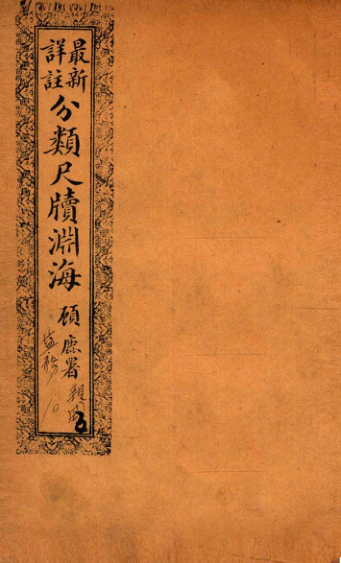 最新
詳註
分類尺牘淵海
顧鹿署
10